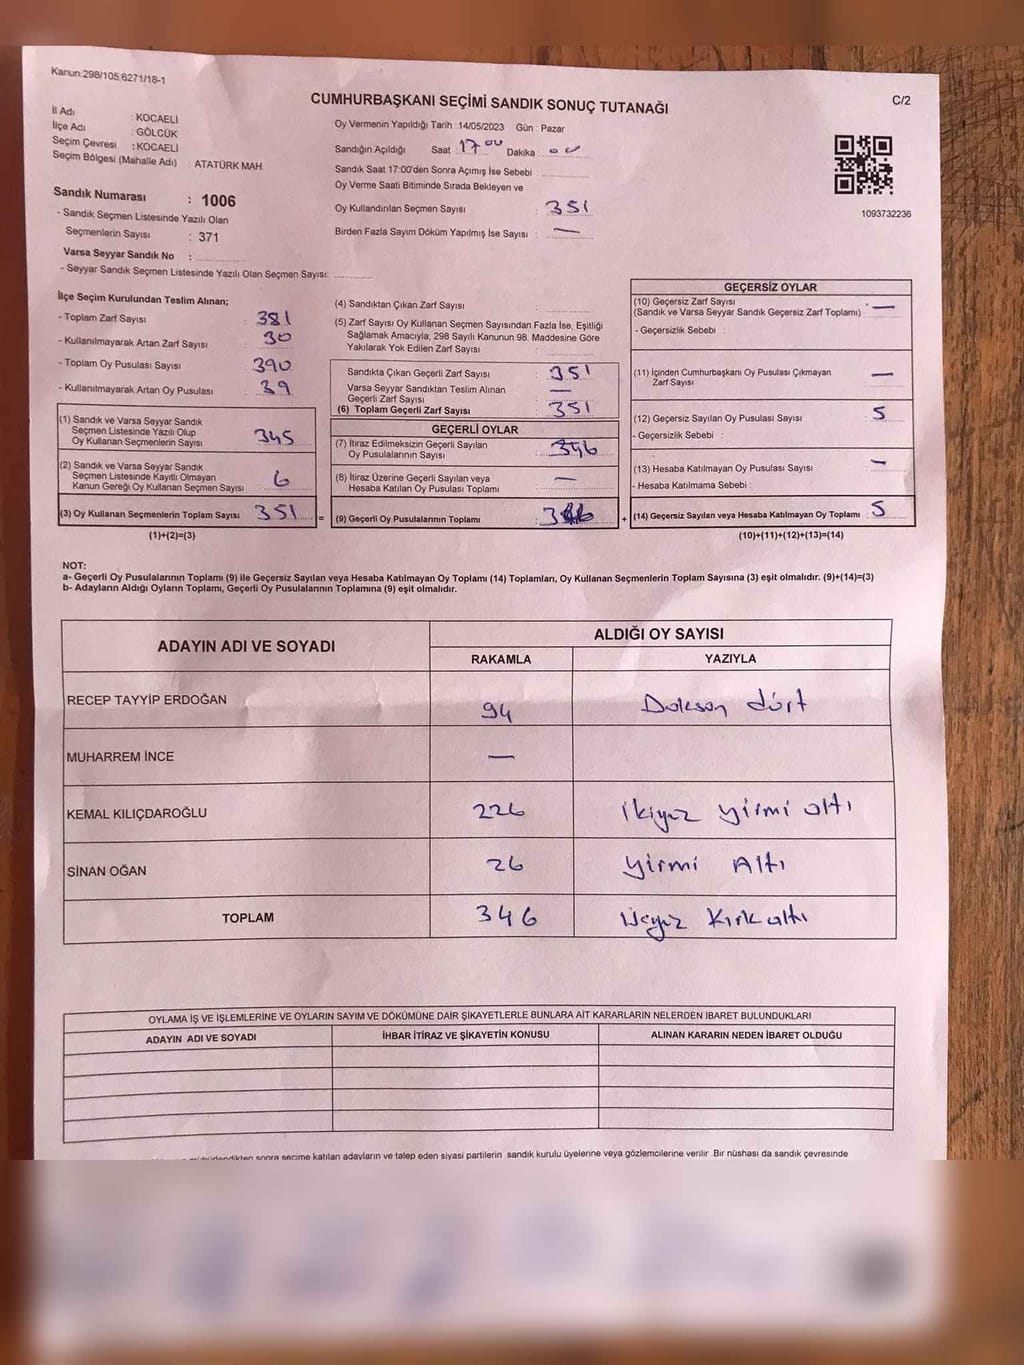 Kanun.298/105.6271/18-1
C/2
CUMHURBAŞKANI SEÇİMİ SANDIK SONUÇ TUTANAĞI
İl Adı : KOCAELİ
İlçe Adı : GÖLCÜK
Seçim Çevresi : KOCAELİ
Seçim Bölgesi (Mahalle Adı) : ATATÜRK MAH.
Sandık Numarası : 1006
- Sandık Seçmen Listesinde Yazılı Olan
Seçmenlerin Sayısı : 371
Varsa Seyyar Sandık No :
- Seyyar Sandık Seçmen Listesinde Yazılı Olan Seçmen Sayısı:
Oy Vermenin Yapıldığı Tarih : 14/05/2023 Gün : Pazar
Sandığın Açıldığı Saat : 17 00 Dakika :
Sandık Saat 17:00'den Sonra Açımış İse Sebebi :
Oy Verme Saati Bitiminde Sırada Bekleyen ve
Oy Kullandırılan Seçmen Sayısı : 351
Birden Fazla Sayım Döküm Yapılmış İse Sayısı : —
1093732236
İlçe Seçim Kurulundan Teslim Alınan;
- Toplam Zarf Sayısı : 381
- Kullanılmayarak Artan Zarf Sayısı : 30
- Toplam Oy Pusulası Sayısı : 390
- Kullanılmayarak Artan Oy Pusulası : 39
(1) Sandık ve Varsa Seyyar Sandık
Seçmen Listesinde Yazılı Olup
Oy Kullanan Seçmenlerin Sayısı : 345
(2) Sandık ve Varsa Seyyar Sandık
Seçmen Listesinde Kayıtlı Olmayan
Kanun Gereği Oy Kullanan Seçmen Sayısı : 6
(3) Oy Kullanan Seçmenlerin Toplam Sayısı : 351 =
(1)+(2)=(3)
(4) Sandıktan Çıkan Zarf Sayısı :
(5) Zarf Sayısı Oy Kullanan Seçmen Sayısından Fazla İse, Eşitliği
Sağlamak Amacıyla; 298 Sayılı Kanunun 98. Maddesine Göre
Yakılarak Yok Edilen Zarf Sayısı :
Sandıkta Çıkan Geçerli Zarf Sayısı : 351
Varsa Seyyar Sandıktan Teslim Alınan
Geçerli Zarf Sayısı : —
(6) Toplam Geçerli Zarf Sayısı : 351
GEÇERLİ OYLAR
(7) İtiraz Edilmeksizin Geçerli Sayılan
Oy Pusulalarının Sayısı : 346
(8) İtiraz Üzerine Geçerli Sayılan veya
Hesaba Katılan Oy Pusulası Toplamı : —
(9) Geçerli Oy Pusulalarının Toplamı : 346 +
GEÇERSİZ OYLAR
(10) Geçersiz Zarf Sayısı
(Sandık ve Varsa Seyyar Sandık Geçersiz Zarf Toplamı) : —
- Geçersizlik Sebebi :
(11) İçinden Cumhurbaşkanı Oy Pusulası Çıkmayan
Zarf Sayısı : —
(12) Geçersiz Sayılan Oy Pusulası Sayısı : 5
- Geçersizlik Sebebi :
(13) Hesaba Katılmayan Oy Pusulası Sayısı : —
- Hesaba Katılmama Sebebi :
(14) Geçersiz Sayılan veya Hesaba Katılmayan Oy Toplamı : 5
(10)+(11)+(12)+(13)=(14)
NOT:
a- Geçerli Oy Pusulalarının Toplamı (9) ile Geçersiz Sayılan veya Hesaba Katılmayan Oy Toplamı (14) Toplamları, Oy Kullanan Seçmenlerin Toplam Sayısına (3) eşit olmalıdır. (9)+(14)=(3)
b- Adayların Aldığı Oyların Toplamı, Geçerli Oy Pusulalarının Toplamına (9) eşit olmalıdır.
ADAYIN ADI VE SOYADI
ALDIĞI OY SAYISI
RAKAMLA YAZIYLA
RECEP TAYYİP ERDOĞAN 94 Doksan dört
MUHARREM İNCE —
KEMAL KILIÇDAROĞLU 226 ikiyüz yirmi altı
SİNAN OĞAN 26 yirmi Altı
TOPLAM 346 Üçyüz Kırk altı
OYLAMA İŞ VE İŞLEMLERİNE VE OYLARIN SAYIM VE DÖKÜMÜNE DAİR ŞİKAYETLERLE BUNLARA AİT KARARLARIN NELERDEN İBARET BULUNDUKLARI
ADAYIN ADI VE SOYADI İHBAR İTİRAZ VE ŞİKAYETİN KONUSU ALINAN KARARIN NEDEN İBARET OLDUĞU
sonra seçime katılan adayların ve talep eden siyasi partilerin sandık kurulu üyelerine veya gözlemcilerine verilir. Bir nüshası da sandık çevresinde